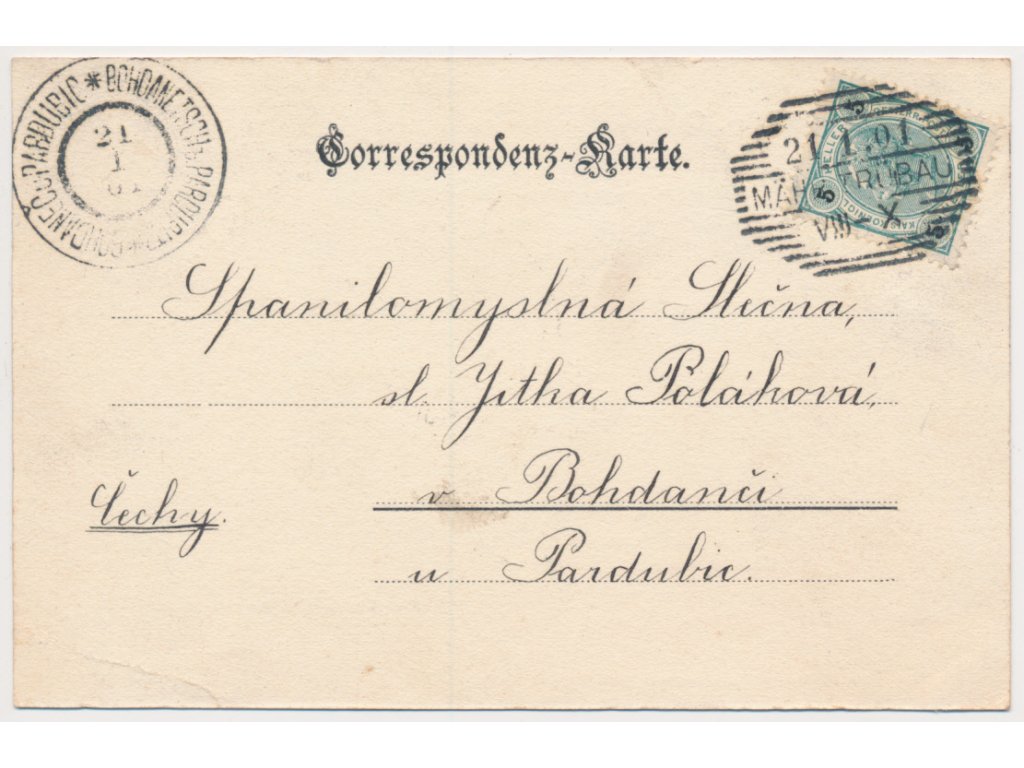 BOHDANEČ u PARDUBIC * BOHDANETSCH b. PARDUBITZ *
21
1
01
Correspondenz-Karte.
21.1.01
MÄHR. TRÜBAU
VIII – X
5 HELLER 5
5
Spanilomyslná Slečna,
sl. Jitka Poláková,
v Bohdanči
Čechy.
u Pardubic.